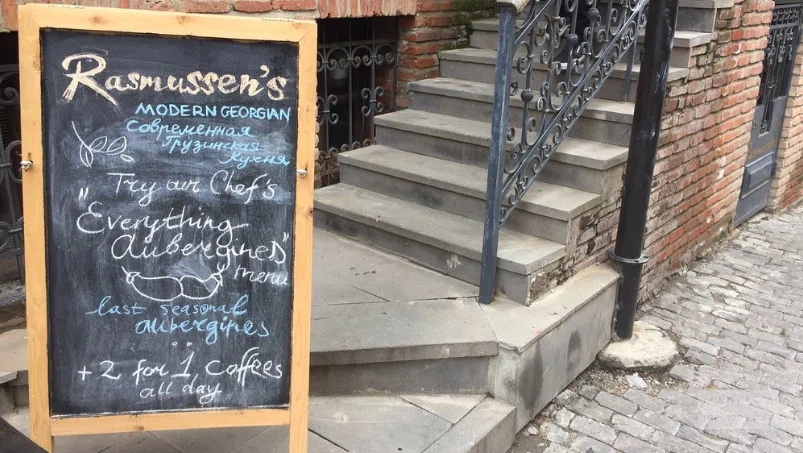 Rasmussen's
MODERN GEORGIAN
Современная
Грузинская
Кухня
Try our Chef's
"Everything
Aubergines"
menu
last seasonal
aubergines
+ 2 for 1 coffees
all day